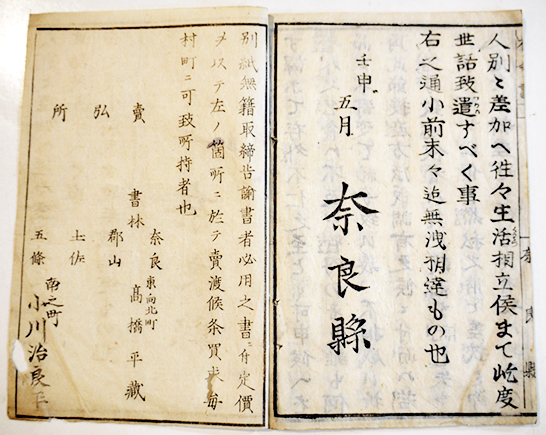 人別ニ差加ヘ往々生活相立候まて屹度
世話致遣すべく事
右之通小前末々迄無洩相達もの也
壬申
五月
奈良縣
別紙無籍取締告諭書者必用之書ニ付定價
ヲ以テ左ノ箇所ニ於テ賣渡候条買求毎
村町ニ可致所持者也
賣弘所
奈良東向北町
書林 高橋平藏
郡山
土佐
五條
南之町
小川治良平